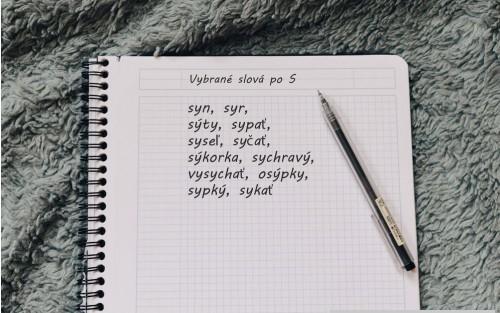 Vybrané slová po S
syn, syr,
sýty, sypať,
syseľ, syčať,
sýkorka, sychravý,
vysychať, osýpky,
sypký, sykať